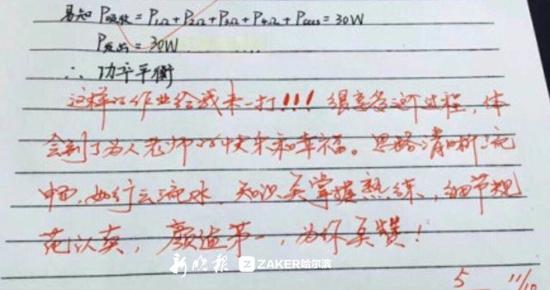 易知 P吸收 = P1Ω + P2Ω + P3Ω + P4Ω + Pcccs = 30W
P发出 = 30W
∴ 功率平衡
这样的作业给我来一打!!! 很享受这个过程，体
会到了为人老师的快乐和幸福。思路清晰流
畅，如行云流水，知识点掌握熟练，细节规
范认真，颜值第一，为你点赞！
新晚报 ZAKER哈尔滨
5 11/10